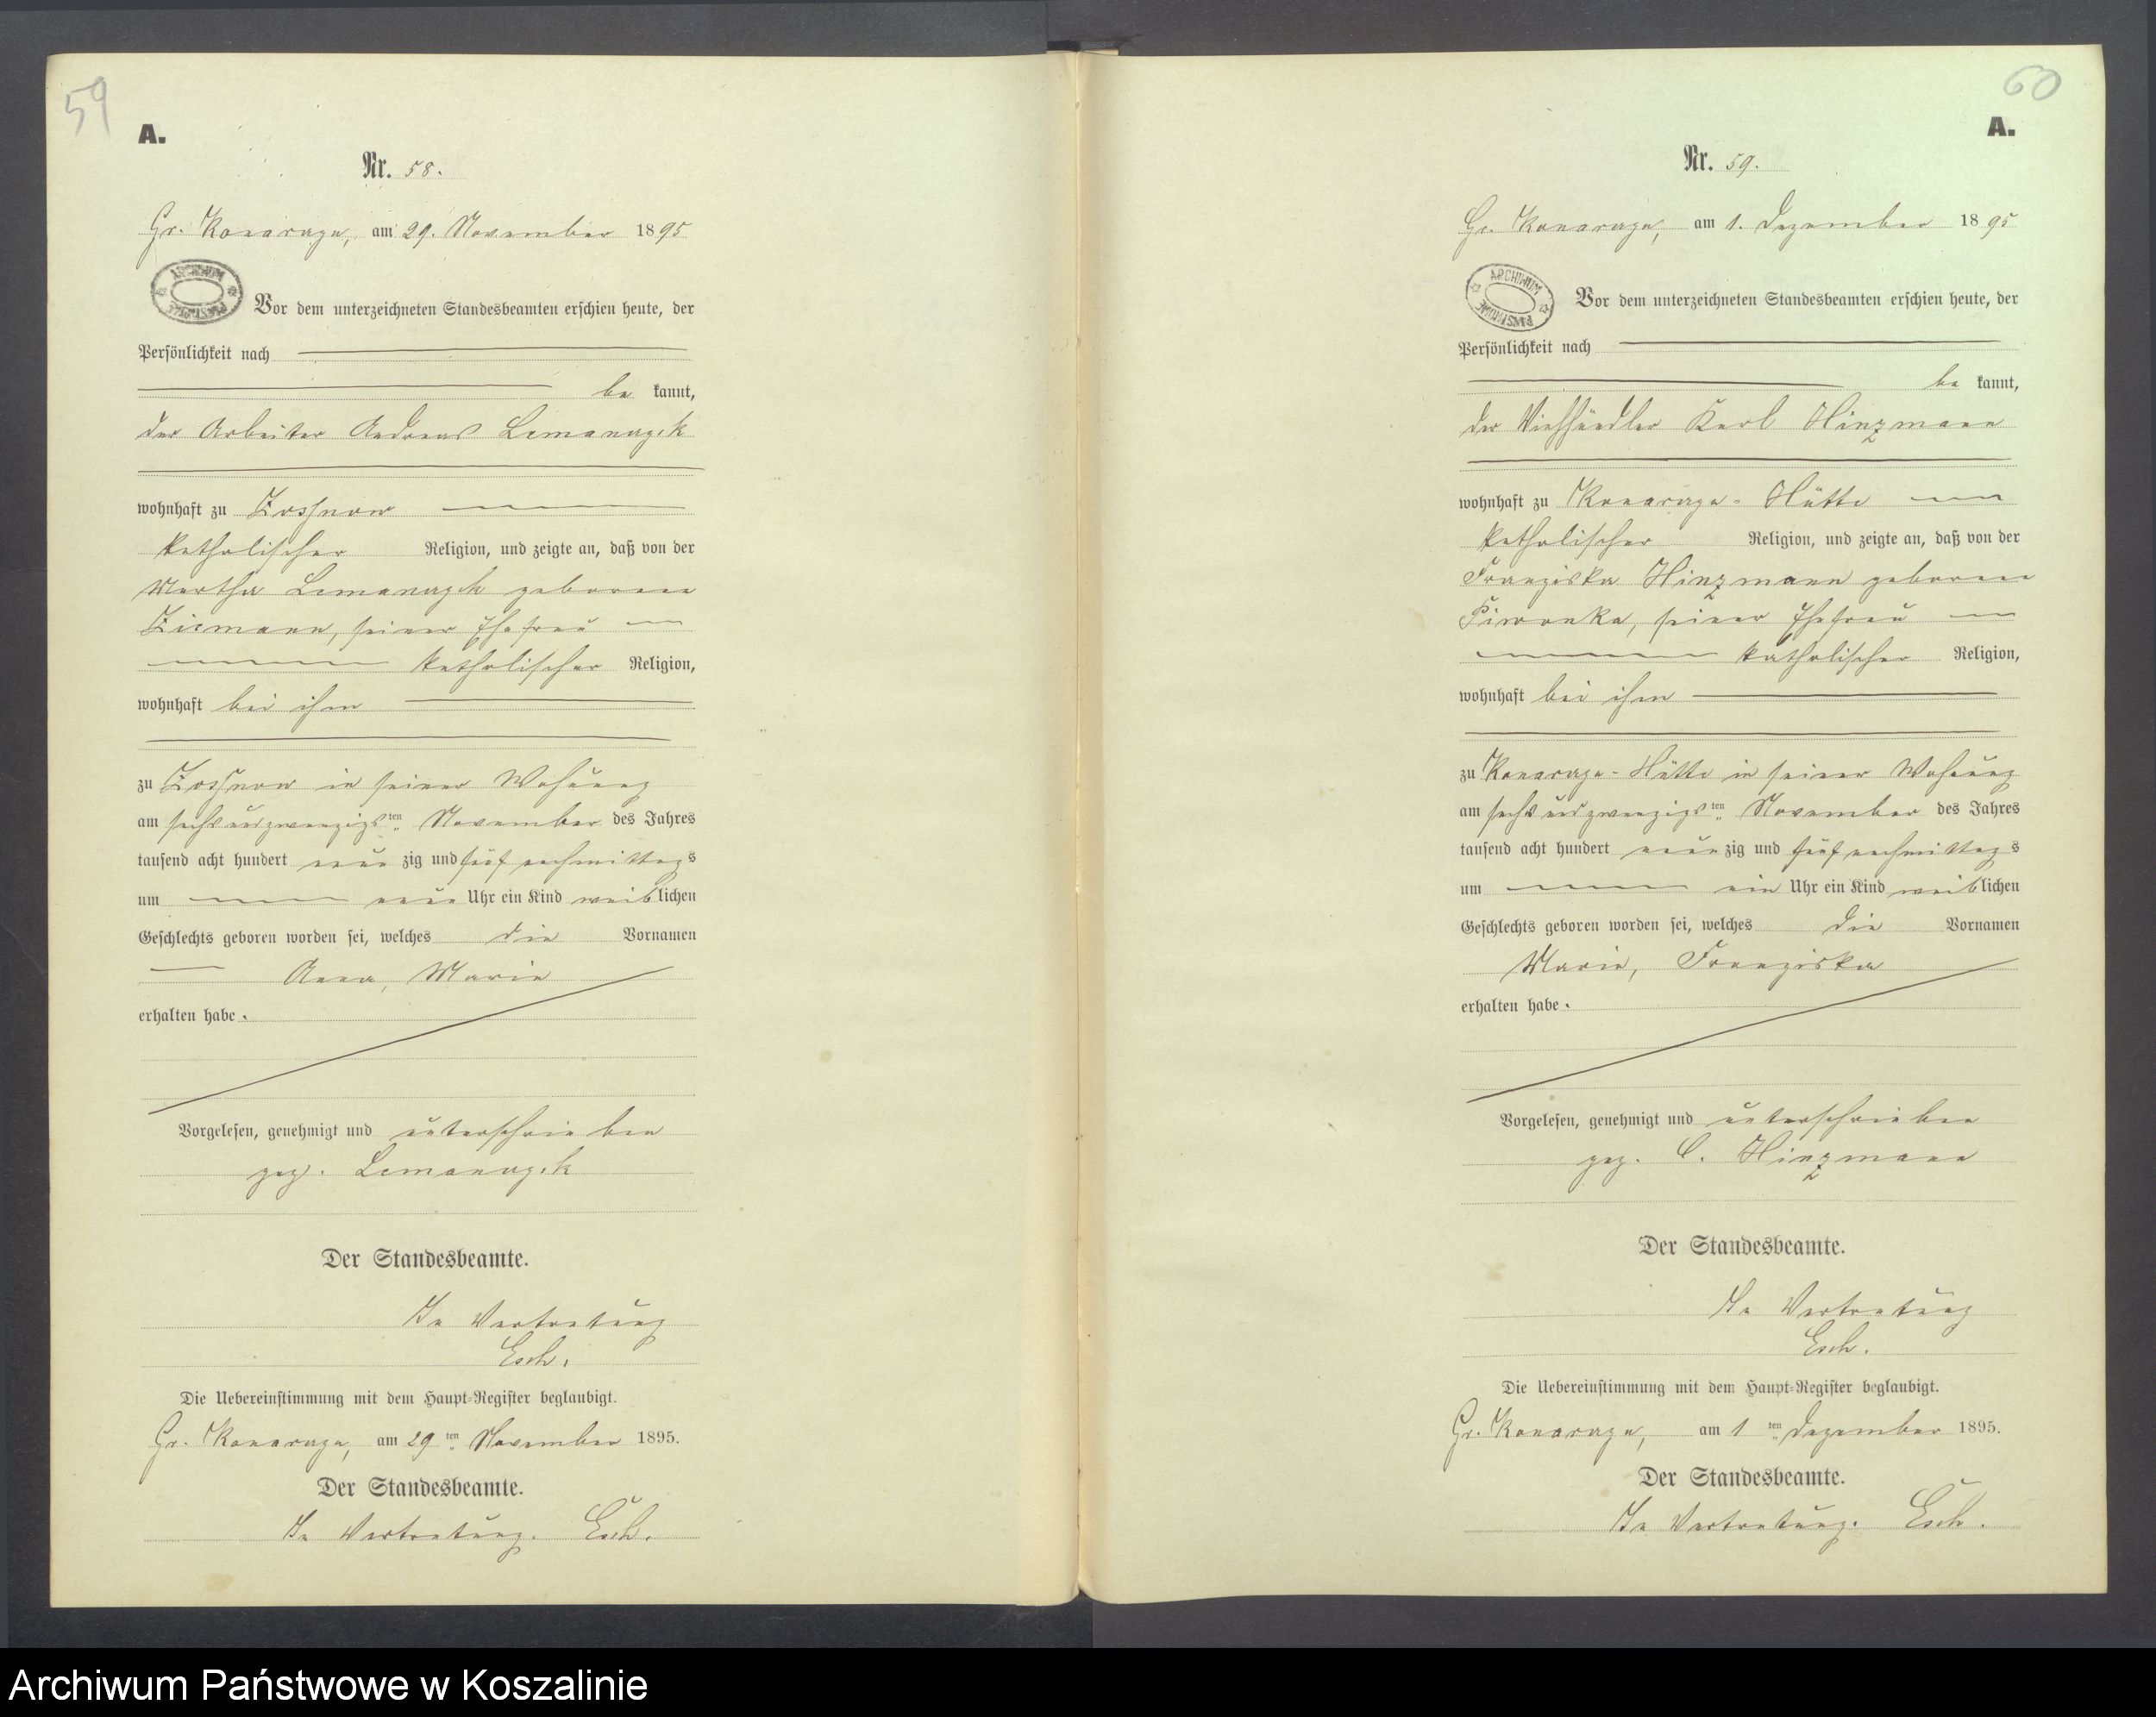 59
A.
Nr. 58.
Gr. Konarzyn, am 29. November 1895
ARCHIWUM PAŃSTWOWE
Vor dem unterzeichneten Standesbeamten erschien heute, der
Persönlichkeit nach
be kannt,
der Arbeiter Andreas Lemanczik
wohnhaft zu Zoshnow
katholischer Religion, und zeigte an, daß von der
Martha Lemanczik geborene
Ziemann, seiner Ehefrau
katholischer Religion,
wohnhaft bei ihm
zu Zoshnow in seiner Wohnung
am sechsundzwanzigsten November des Jahres
tausend acht hundert neunzig und fünf nachmittags
um neun Uhr ein Kind weiblichen
Geschlechts geboren worden sei, welches die Vornamen
Anna, Marie
erhalten habe.
Vorgelesen, genehmigt und unterschrieben
gez. Lemanczik
Der Standesbeamte.
In Vertretung
Esch.
Die Uebereinstimmung mit dem Haupt-Register beglaubigt.
Gr. Konarzyn, am 29ten November 1895.
Der Standesbeamte.
In Vertretung. Esch.
60
A.
Nr. 59.
Gr. Konarzyn, am 1. Dezember 1895
ARCHIWUM PAŃSTWOWE
Vor dem unterzeichneten Standesbeamten erschien heute, der
Persönlichkeit nach
be kannt,
der Viehhändler Karl Hinzmann
wohnhaft zu Konarzyn-Hütte
katholischer Religion, und zeigte an, daß von der
Franziska Hinzmann geborene
Piwonka, seiner Ehefrau
katholischer Religion,
wohnhaft bei ihm
zu Konarzyn-Hütte in seiner Wohnung
am sechsundzwanzigsten November des Jahres
tausend acht hundert neunzig und fünf nachmittags
um ein Uhr ein Kind weiblichen
Geschlechts geboren worden sei, welches die Vornamen
Marie, Franziska
erhalten habe.
Vorgelesen, genehmigt und unterschrieben
gez. C. Hinzmann
Der Standesbeamte.
In Vertretung
Esch.
Die Uebereinstimmung mit dem Haupt-Register beglaubigt.
Gr. Konarzyn, am 1ten Dezember 1895.
Der Standesbeamte.
In Vertretung. Esch.
Archiwum Państwowe w Koszalinie